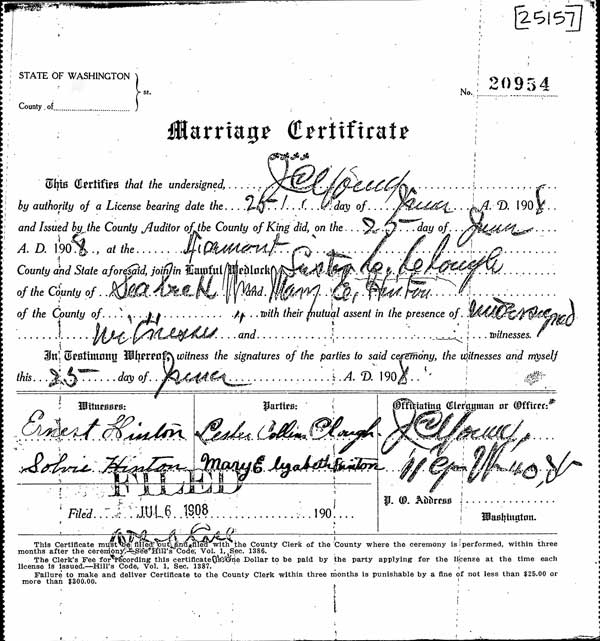 [25157]
STATE OF WASHINGTON
ss.
County of
No. 20954
Marriage Certificate
This Certifies that the undersigned, J C Young
by authority of a License bearing date the 25 day of June A. D. 1908
and Issued by the County Auditor of the County of King did, on the 25 day of June
A. D. 1908, at the
County and State aforesaid, join in Lawful Wedlock Lester C. Clough
of the County of and Mary E. Hinton
of the County of " with their mutual assent in the presence of undersigned
witnesses and witnesses.
In Testimony Whereof, witness the signatures of the parties to said ceremony, the witnesses and myself
this 25 day of June A. D. 1908
Witnesses: Parties: Officiating Clergyman or Officer:
Ernest Hinton Lester Collins Clough J C Young,
Solvie Hinton Mary Elizabeth Hinton
FILED
P. O. Address
Filed JUL 6 1908 190
Washington.
This Certificate must be filled out and filed with the County Clerk of the County where the ceremony is performed, within three
months after the ceremony.—See Hill's Code, Vol. 1, Sec. 1386.
The Clerk's Fee for recording this certificate is One Dollar to be paid by the party applying for the license at the time each
license is issued.—Hill's Code, Vol. 1, Sec. 1387.
Failure to make and deliver Certificate to the County Clerk within three months is punishable by a fine of not less than $25.00 or
more than $300.00.